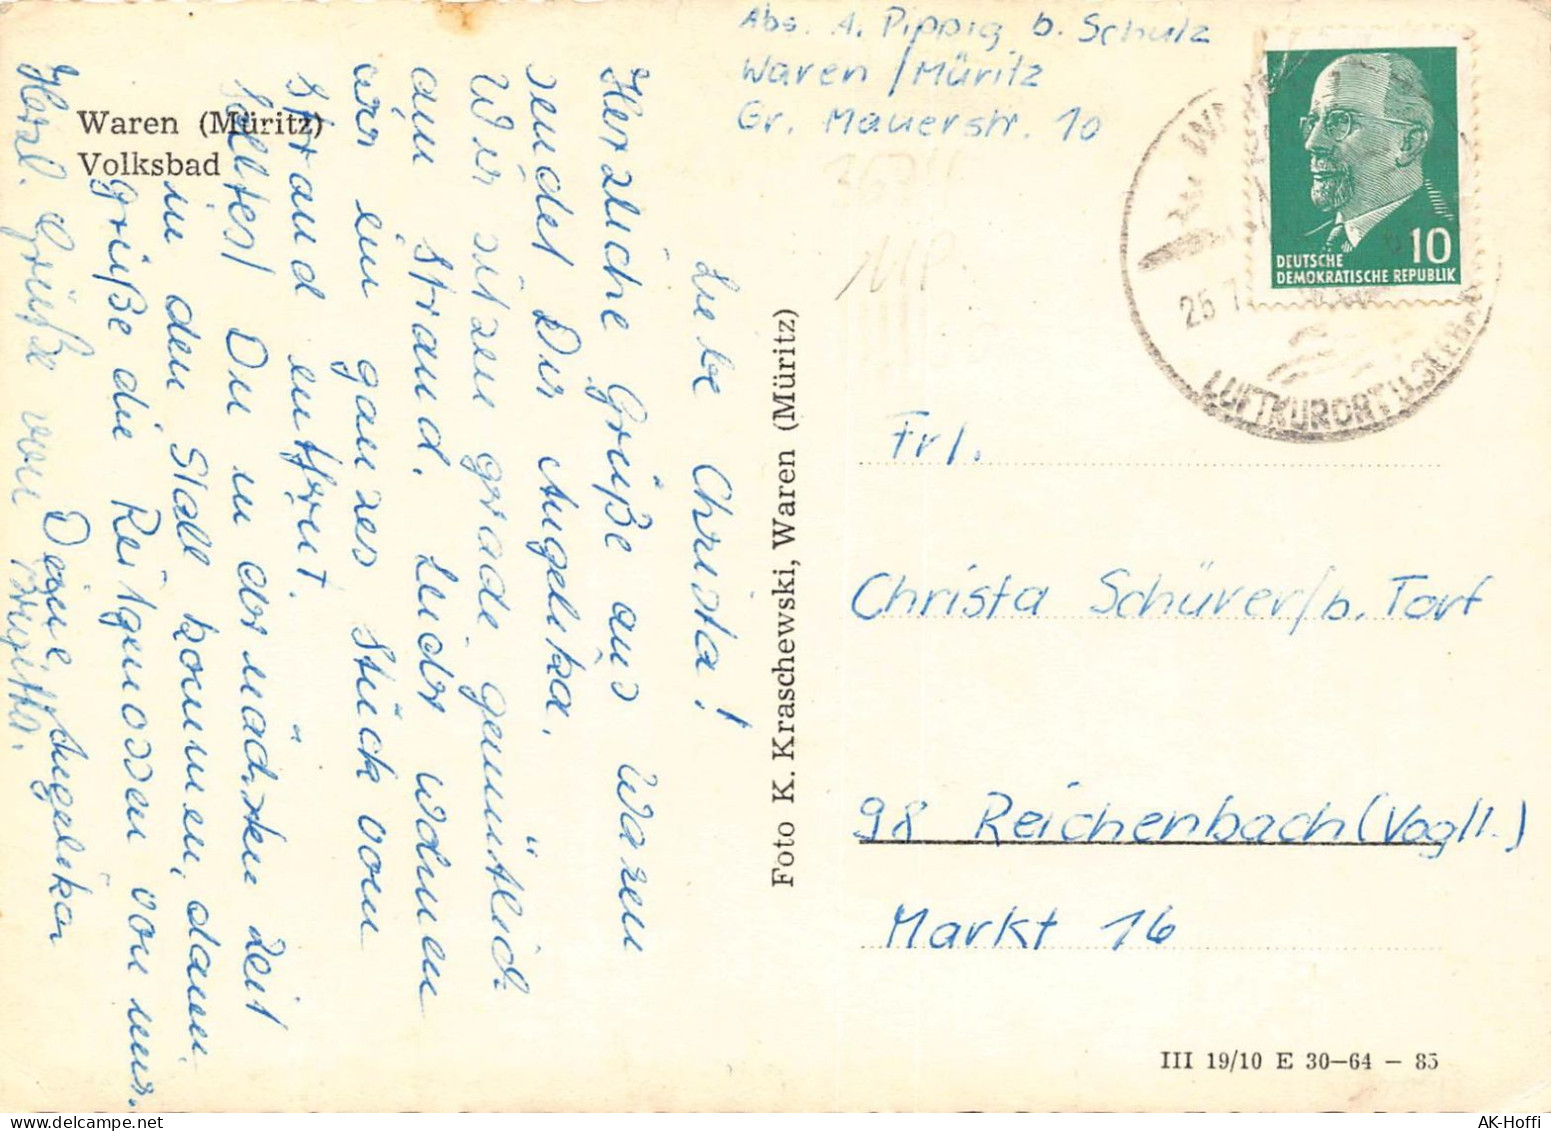 Waren (Müritz)
Volksbad
Liebe Christa!
Herzliche Grüße aus Waren
sendet Dir Angelika.
Wir sitzen grade gemütlich
am Strand. Leider wohnen
wir ein ganzes Stück vom
Strand entfernt.
Solltest Du in der nächsten Zeit
in den Stall kommen, dann
grüße die Reitgenossen von mir.
Deine Angelika
Herzl. Grüße von Brigitta.
Foto K. Kraschewski, Waren (Müritz)
Abs. A. Pippig b. Schulz
Waren / Müritz
Gr. Mauerstr. 10
DEUTSCHE
DEMOKRATISCHE REPUBLIK
10
25 7
LUFTKURORT U.
Frl.
Christa Schürer / b. Torf
98 Reichenbach (Vogtl.)
Markt 16
III 19/10 E 30—64 — 85
AK-Hoffi